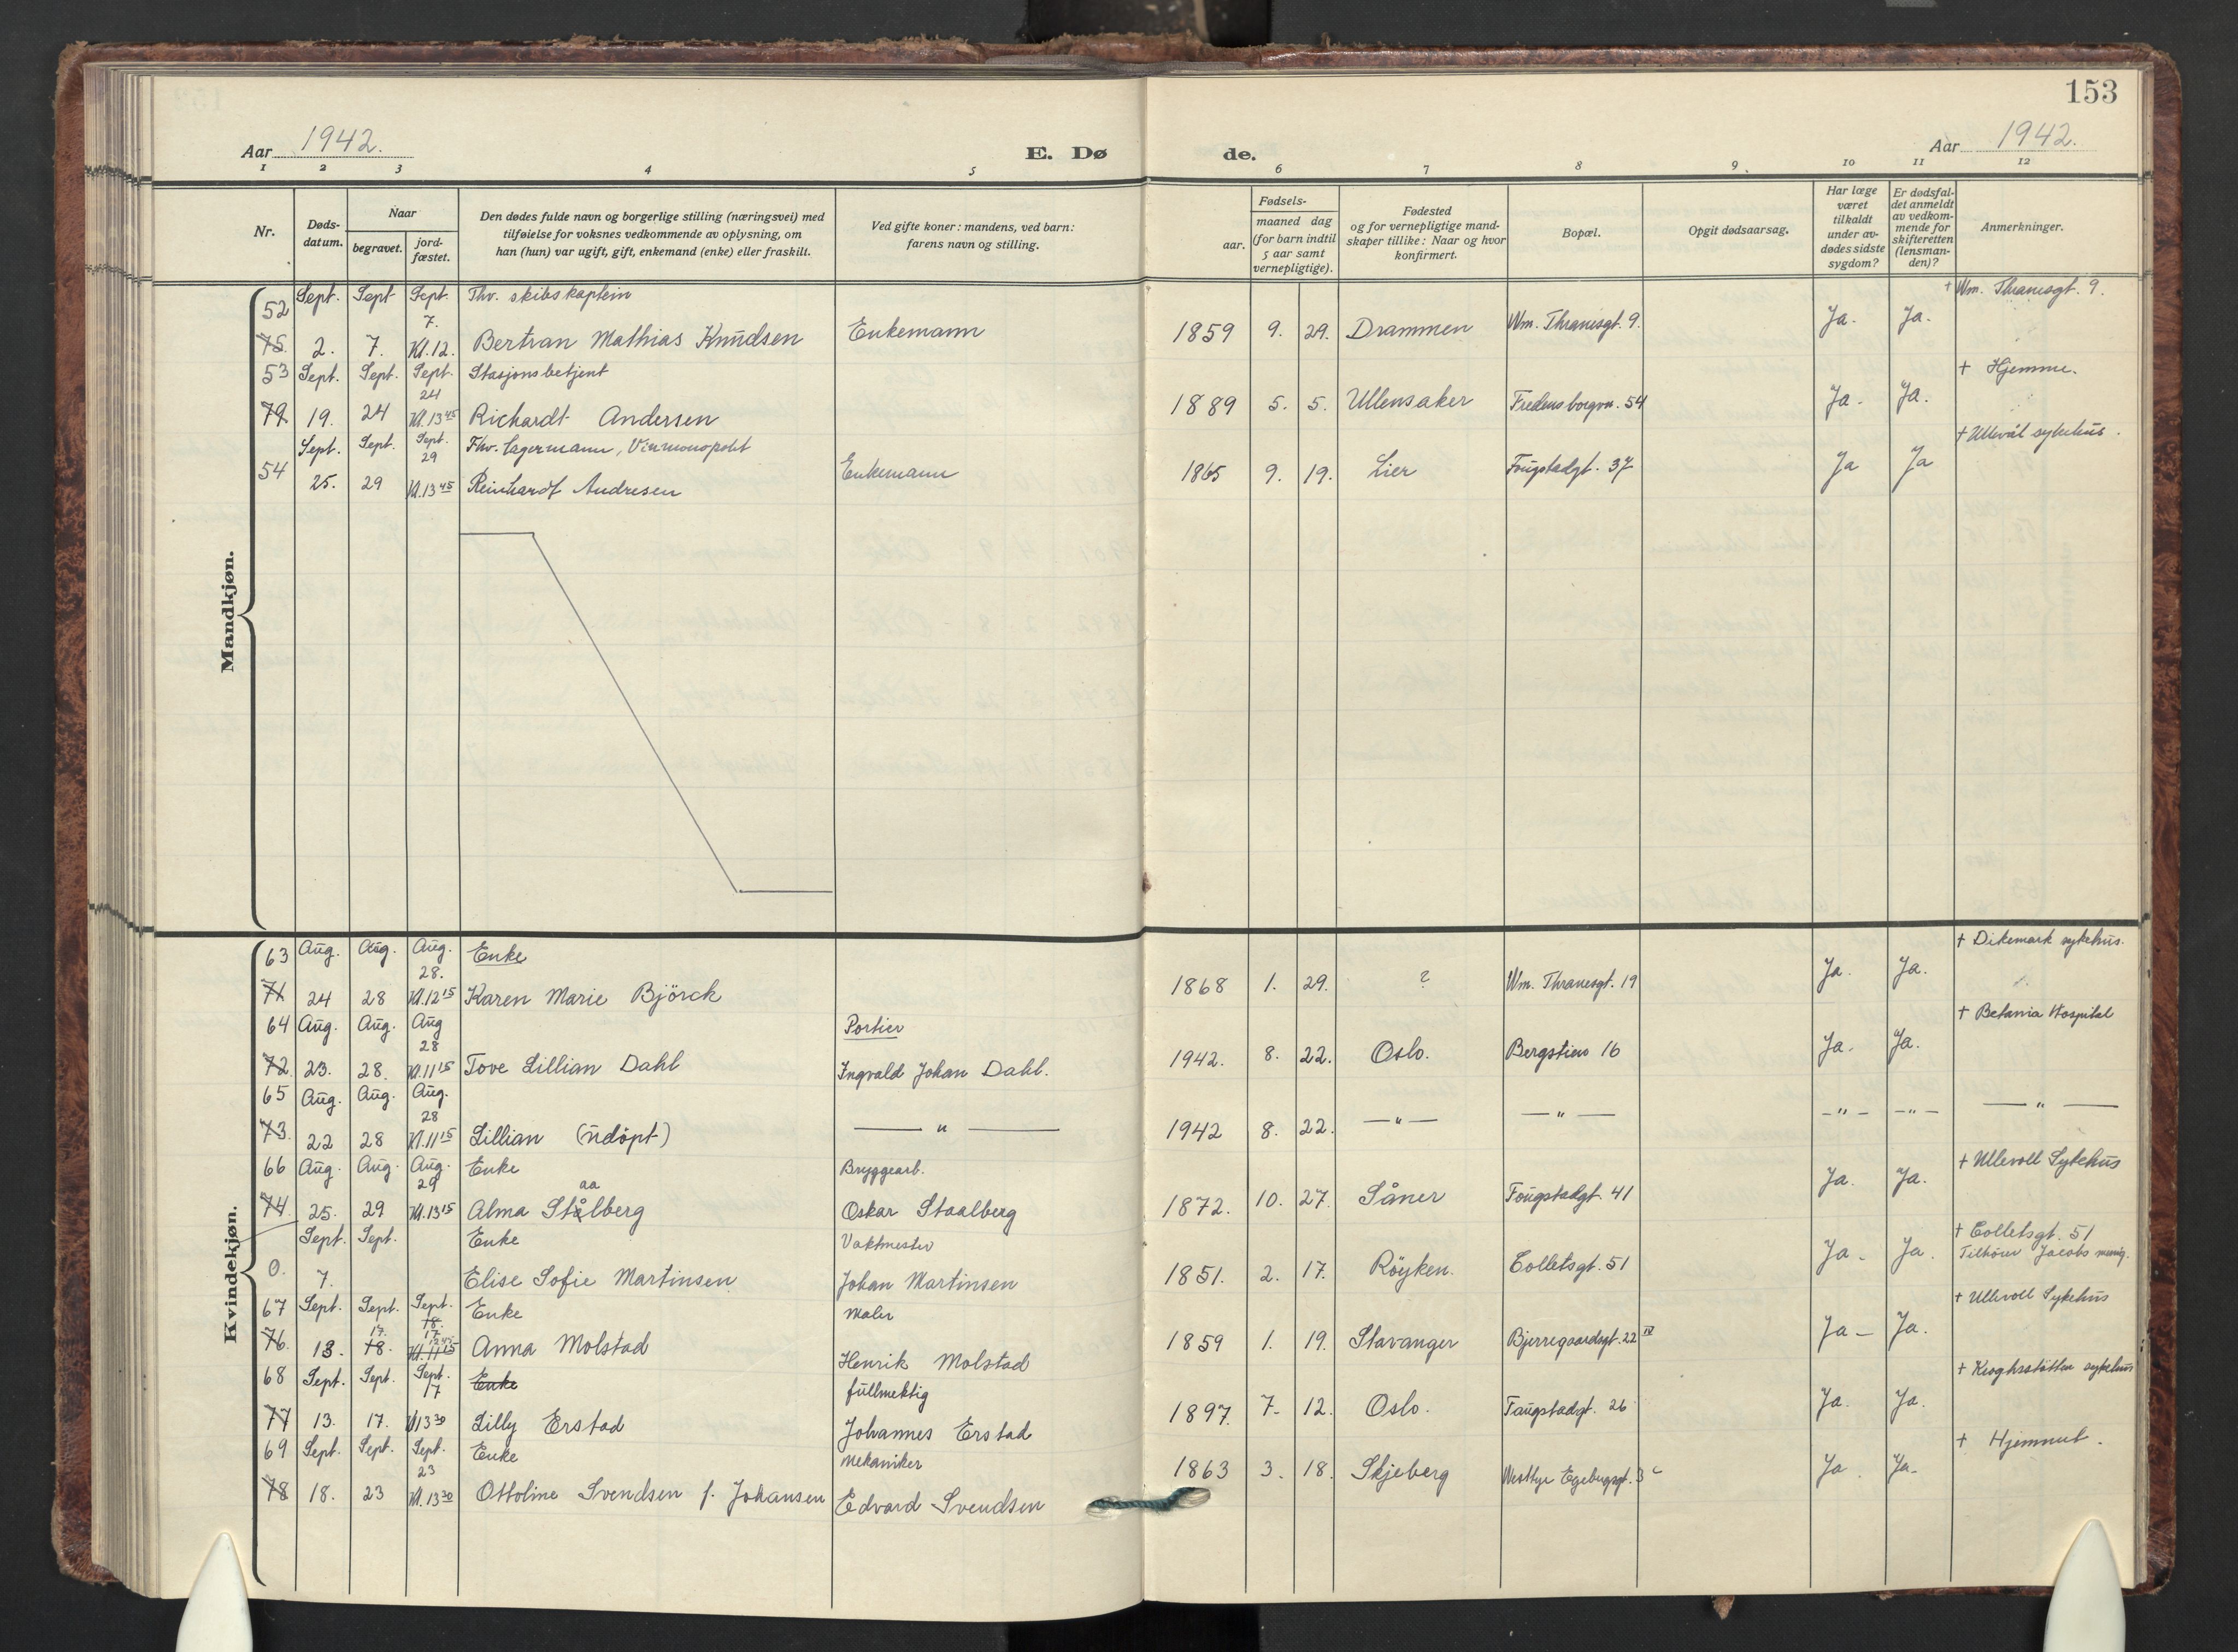 153
Aar 1942.
E. Dø
de.
Aar 1942.
1 2 3 4 5 6 7 8 9. 10 11 12
Nr.
Døds-
datum.
Naar
begravet.
jord-
fæstet.
Den dødes fulde navn og borgerlige stilling (næringsvei) med
tilføielse for voksnes vedkommende av oplysning, om
han (hun) var ugift, gift, enkemand (enke) eller fraskilt.
Ved gifte koner: mandens, ved barn:
farens navn og stilling.
Fødsels-
aar.
maaned dag
(for barn indtil
5 aar samt
vernepligtige).
Fødested
og for vernepligtige mand-
skaper tillike: Naar og hvor
konfirmert.
Bopæl.
Opgit dødsaarsag.
Har læge
været
tilkaldt
under av-
dødes sidste
sygdom?
Er dødsfal-
det anmeldt
av vedkom-
mende for
skifteretten
(lensman-
den)?
Anmerkninger.
Mandkjøn.
52 Sept. Sept Sept. Thv. skibskaptein † Wm. Thranesgt. 9.
7.
75. 2. 7. Kl. 12. Bertran Mathias Knudsen Enkemann 1859 9. 29. Drammen Wm. Thranesgt. 9. Ja. Ja.
53 Sept. Sept. Sept. Stasjonsbetjent † Hjemme.
24
79 19. 24 Kl. 13 45 Richardt Andersen 1889 5. 5. Ullensaker Fredensborgvn. 54 Ja. Ja.
Sept. Sept. Sept. Fhv. lagermann, Vinmonopolet † Ullevål sykehus.
29
54 25. 29 Kl. 13 45 Reinhardt Andresen Enkemann 1865 9. 19. Lier Fougstadgt. 37 Ja Ja
Kvindekjøn.
63 Aug. Aug. Aug. Enke † Dikemark sykehus.
28.
71 24 28 Kl. 12 15 Karen Marie Björck 1868 1. 29. ? Wm. Thranesgt. 19 Ja. Ja.
64 Aug. Aug. Aug Portier † Betania Hospital
28
72. 23. 28. Kl. 11 15 Tove Lillian Dahl Ingvald Johan Dahl. 1942. 8. 22. Oslo. Bergstien 16 Ja. Ja.
65 Aug. Aug. Aug.
28
73. 22 28 Kl. 11 15 Lillian (udöpt) — " — 1942 8. 22. — " — — " — — " — — " — — " —
66 Aug. Aug. Aug. Enke Bryggearb. † Ullevoll Sykehus
29 aa
74. 25. 29 Kl. 13 15 Alma Stålberg Oskar Staalberg 1872. 10. 27. Såner Fougstadgt. 41 Ja. Ja.
Sept. Sept. Enke Vaktmester † Colletsgt. 51
Tilhörer Jacobs menig.
0. 7. Elise Sofie Martinsen Johan Martinsen 1851. 2. 17. Røyken. Colletsgt. 51 Ja. Ja.
67 Sept. Sept. Sept. Enke Maler † Ullevoll Sykehus
17. 18. 17.
76. 13. 18. Kl. 11 15 12 45 Anna Molstad Henrik Molstad 1859 1. 19. Stavanger Bjerregaardsgt. 22 IV Ja — Ja.
68 Sept. Sept. Sept. Enke fullmektig † Kroghsstötten sykehus
17
77 13. 17. Kl 13 30 Lilly Erstad Johannes Erstad 1897. 7. 12. Oslo. Faugstadgt. 26 Ja. Ja.
69 Sept. Sept. Sept. Enke Mekaniker † Hjemmet.
23
78 18. 23 Kl. 13 30 Ottoline Svendsen f. Johansen Edvard Svendsen 1863 3. 18. Skjeberg Westbye Egebergsgt. 3 c Ja. Ja.